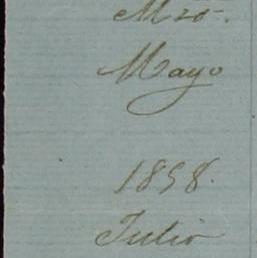 Mzo.
Mayo
1858.
Julio